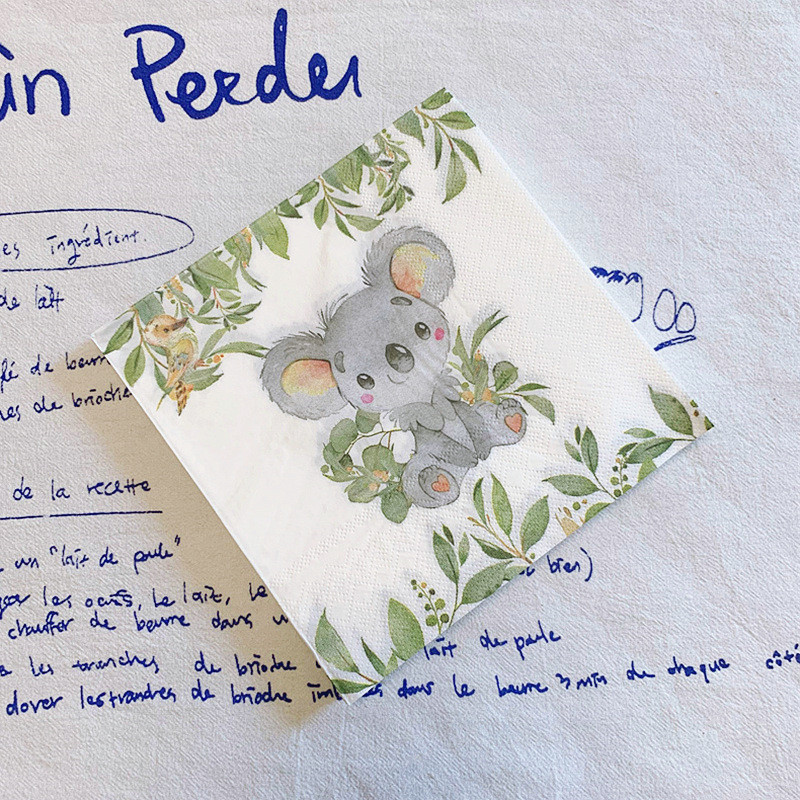 ain Perdu
es ingrédient.
de lait
fé de beurr
hes de brioche
de la recette
un "lait de poule"
ger les oeufs, le lait, le
bien)
chauffer de beurre dans u
les tranches de brioche
lait de poule
dorer les tranches de brioche im
dans le beurre 3 min de chaque côté